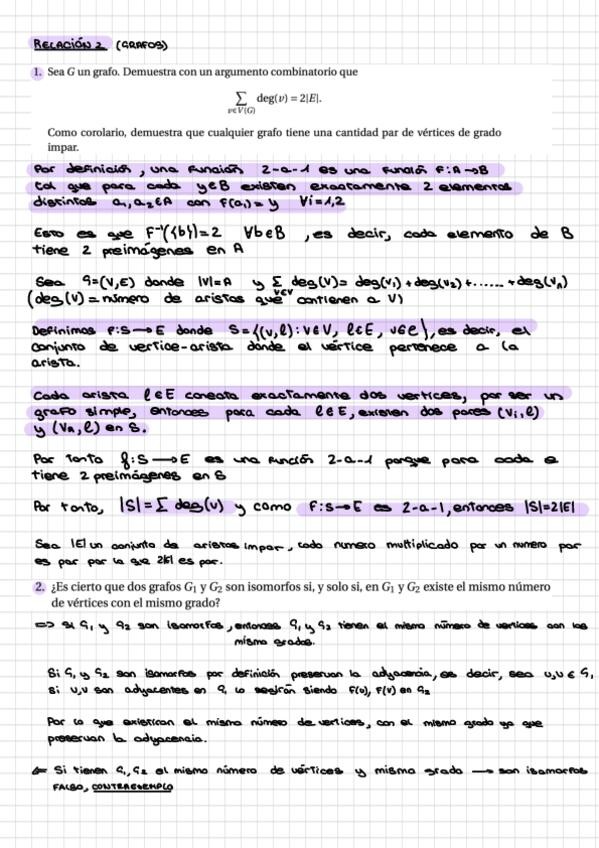 RELACIÓN 2 (GRAFOS)
1. Sea G un grafo. Demuestra con un argumento combinatorio que
∑ deg(v) = 2|E|.
v∈V(G)
Como corolario, demuestra que cualquier grafo tiene una cantidad par de vértices de grado
impar.
Por definición, una función 2-a-1 es una función F:A→B
tal que para cada y∈B existen exactamente 2 elementos
distintos a₁,a₂∈A con F(aᵢ)=y ∀i=1,2
Esto es que F⁻¹({b})=2 ∀b∈B, es decir, cada elemento de B
tiene 2 preimágenes en A
Sea G=(V,E) donde |V|=n y ∑ deg(v)= deg(v₁)+deg(v₂)+......+deg(vₙ)
v∈V
(deg(v)=número de aristas que contienen a V)
Definimos F:S→E donde S={(v,l): v∈V, l∈E, v∈e}, es decir, el
conjunto de vertice-arista donde el vértice pertenece a la
arista.
Cada arista l∈E conecta exactamente dos vertices, por ser un
grafo simple, entonces para cada l∈E, existen dos pares (vᵢ,l)
y (vₙ,l) en S.
Por tanto f:S→E es una función 2-a-1 porque para cada e
tiene 2 preimágenes en S
Por tanto, |S|=∑ deg(v) y como F:S→E es 2-a-1, entonces |S|=2|E|
Sea |E| un conjunto de aristas impar, cada numero multiplicado por un numero par
es par por lo que 2|E| es par.
2. ¿Es cierto que dos grafos G₁ y G₂ son isomorfos si, y solo si, en G₁ y G₂ existe el mismo número
de vértices con el mismo grado?
=> Si G₁ y G₂ son isomorfos, entonces G₁ y G₂ tienen el mismo número de vertices con los
mismo grados.
Si G₁ y G₂ son isomorfos por definición preservan la adyacencia, es decir, sea u,v ∈ G₁
si u,v son adyacentes en G₁ lo seguirán siendo F(u), F(v) en G₂
Por lo que existiran el mismo número de vertices, con el mismo grado ya que
preservan la adyacencia.
<= Si tienen G₁,G₂ el mismo número de vértices y mismo grado → son isomorfos
FALSO, CONTRAEJEMPLO